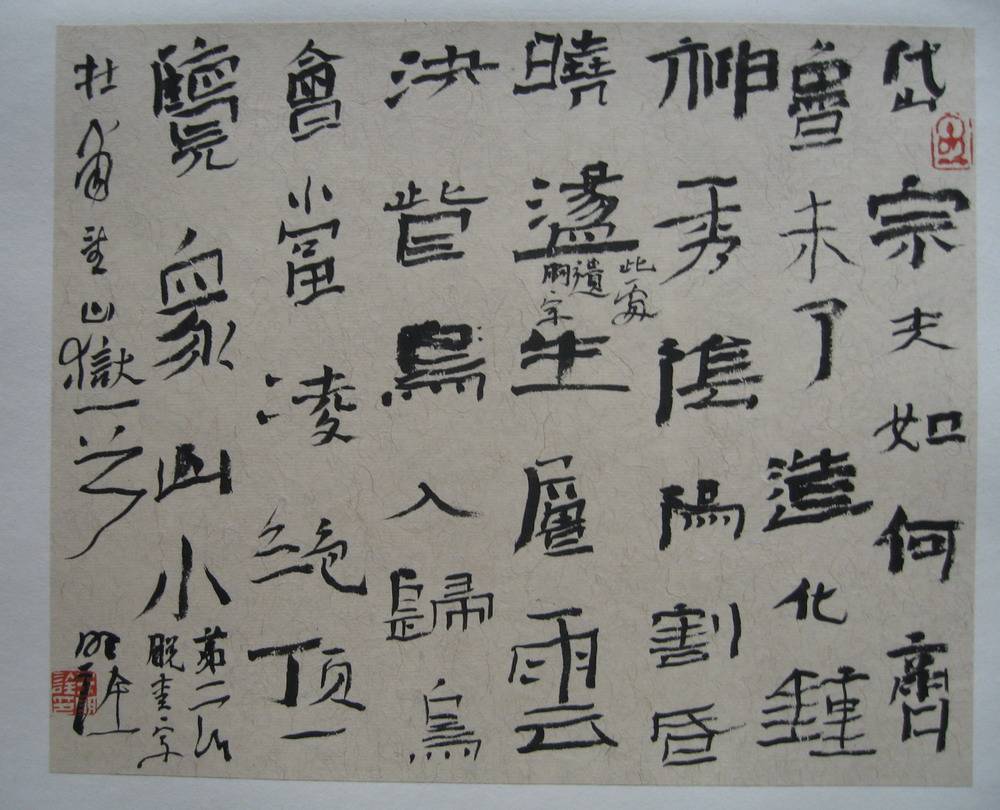 岱宗夫如何齊
魯未了造化鍾
神秀陰陽割昏
曉盪生層雲
此處
遺
胸字
決眥鳥入歸鳥
會當凌絕頂一
覽眾山小
第二行
脫青字
杜甫望山嶽一之